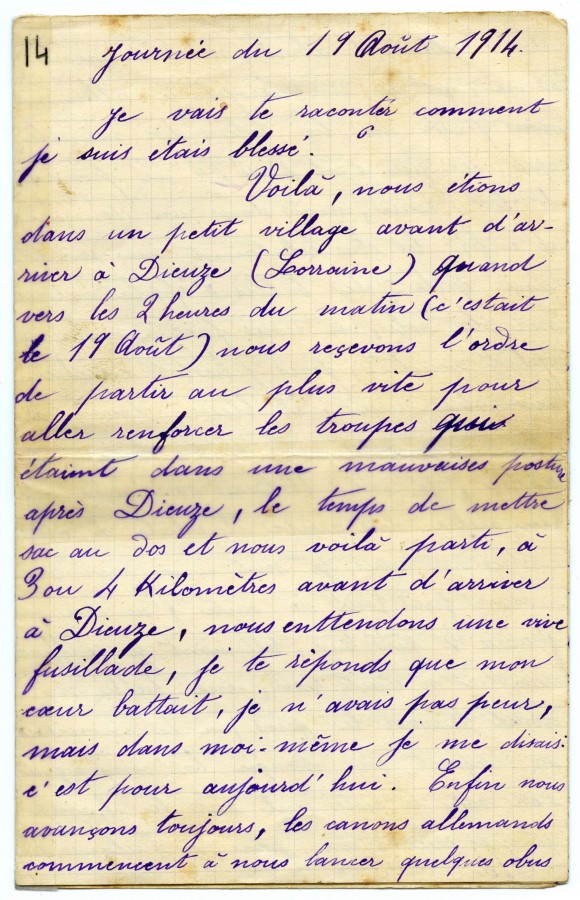 14
Journée du 19 Août 1914.
Je vais te raconter comment
je suis étais blessé.
Voilà, nous étions
dans un petit village avant d'ar-
river à Dieuze (Lorraine) quand
vers les 2 heures du matin (c'était
le 19 Août) nous reçevons l'ordre
de partir au plus vite pour
aller renforcer les troupes qui
étaint dans une mauvaises posture
après Dieuze, le temps de mettre
sac au dos et nous voilà parti, à
3 ou 4 Kilomètres avant d'arriver
à Dieuze, nous enttendons une vive
fusillade, je te réponds que mon
cœur battait, je n'avais pas peur,
mais dans moi-même je me disais:
c'est pour aujourd'hui. Enfin nous
avançons toujours, les canons allemands
commencent à nous lancer quelques obus